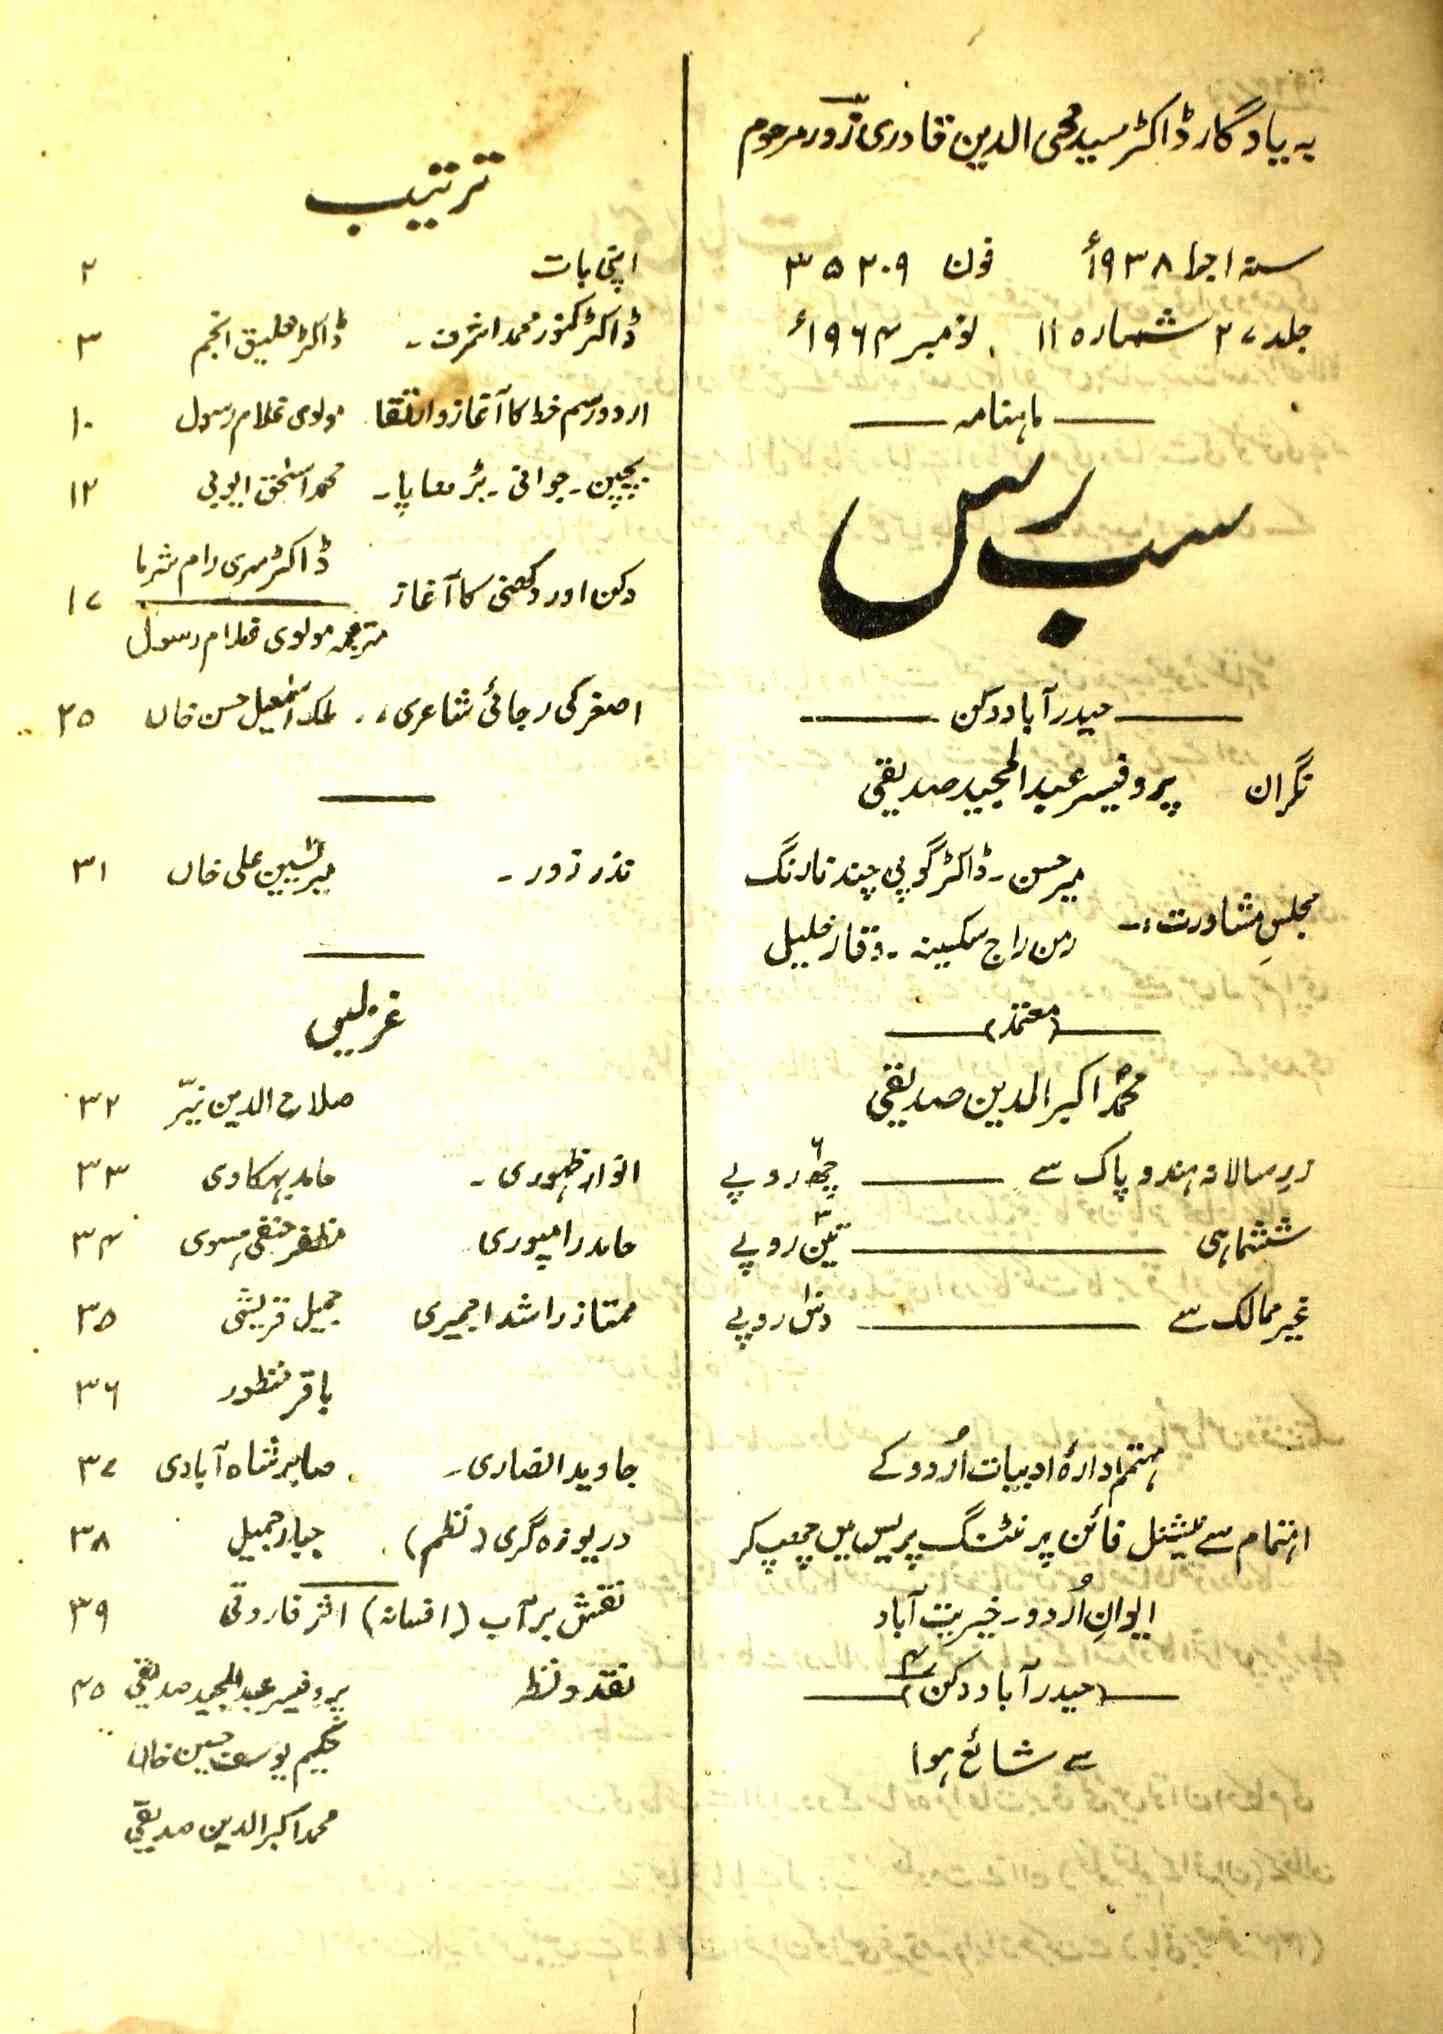 بہ یادگار ڈاکٹر سید محی الدین قادری زور مرحوم
سنہ اجرا ۱۹۳۸ء فون ۳۵۲۰۹
جلد ۲۷ شمارہ ۱۱ نومبر ۱۹۶۴ء
ماہنامہ
سب رس
حیدرآباد دکن
نگران پروفیسر عبدالمجید صدیقی
مجلسِ مشاورت :۔ میر حسن ۔ ڈاکٹر گوپی چند نارنگ
رمن راج سکسینہ ۔ وقار خلیل
(معتمد)
محمد اکبر الدین صدیقی
زرِ سالانہ ہند و پاک سے ۶ چھ روپے
ششماہی ۳ تین روپے
غیر ممالک سے دس روپے
مہتمم ادارۂ ادبیات اُردو کے
اہتمام سے نیشنل فائن پرنٹنگ پریس میں چھپ کر
ایوانِ اُردو ۔ خیریت آباد
(حیدرآباد دکن ۴)
سے شائع ہوا
ترتیب
اپنی بات ۲
ڈاکٹر کنور محمد اشرف ۔ ڈاکٹر خلیق انجم ۳
اردو رسم خط کا آغاز و ارتقا مولوی غلام رسول ۱۰
بچپن ۔ جوانی ۔ بڑھاپا ۔ محمد اسحٰق ایوبی ۱۲
دکن اور دکھنی کا آغاز ڈاکٹر سری رام شرما ۱۷
مترجمہ مولوی غلام رسول
اصغر کی رجائی شاعری ،، ملک اسمٰعیل حسن خاں ۲۵
نذر زور ۔ میر یٰسین علی خاں ۳۱
غزلیں
صلاح الدین نیّر ۳۲
انوار ظہوری ۔ حامد بہکاوی ۳۳
حامد رامپوری مظفر حنفی ہسوی ۳۴
ممتاز راشد اجمیری جمیل قریشی ۳۵
باقر منظور ۳۶
جاوید انصاری ۔ صابر شاہ آبادی ۳۷
دریوزہ گری (نظم) جبار جمیل ۳۸
نقش بر آب (افسانہ) اثر فاروقی ۳۹
نقد و نظر پروفیسر عبدالمجید صدیقی ۴۵
حکیم یوسف حسین خاں
محمد اکبر الدین صدیقی